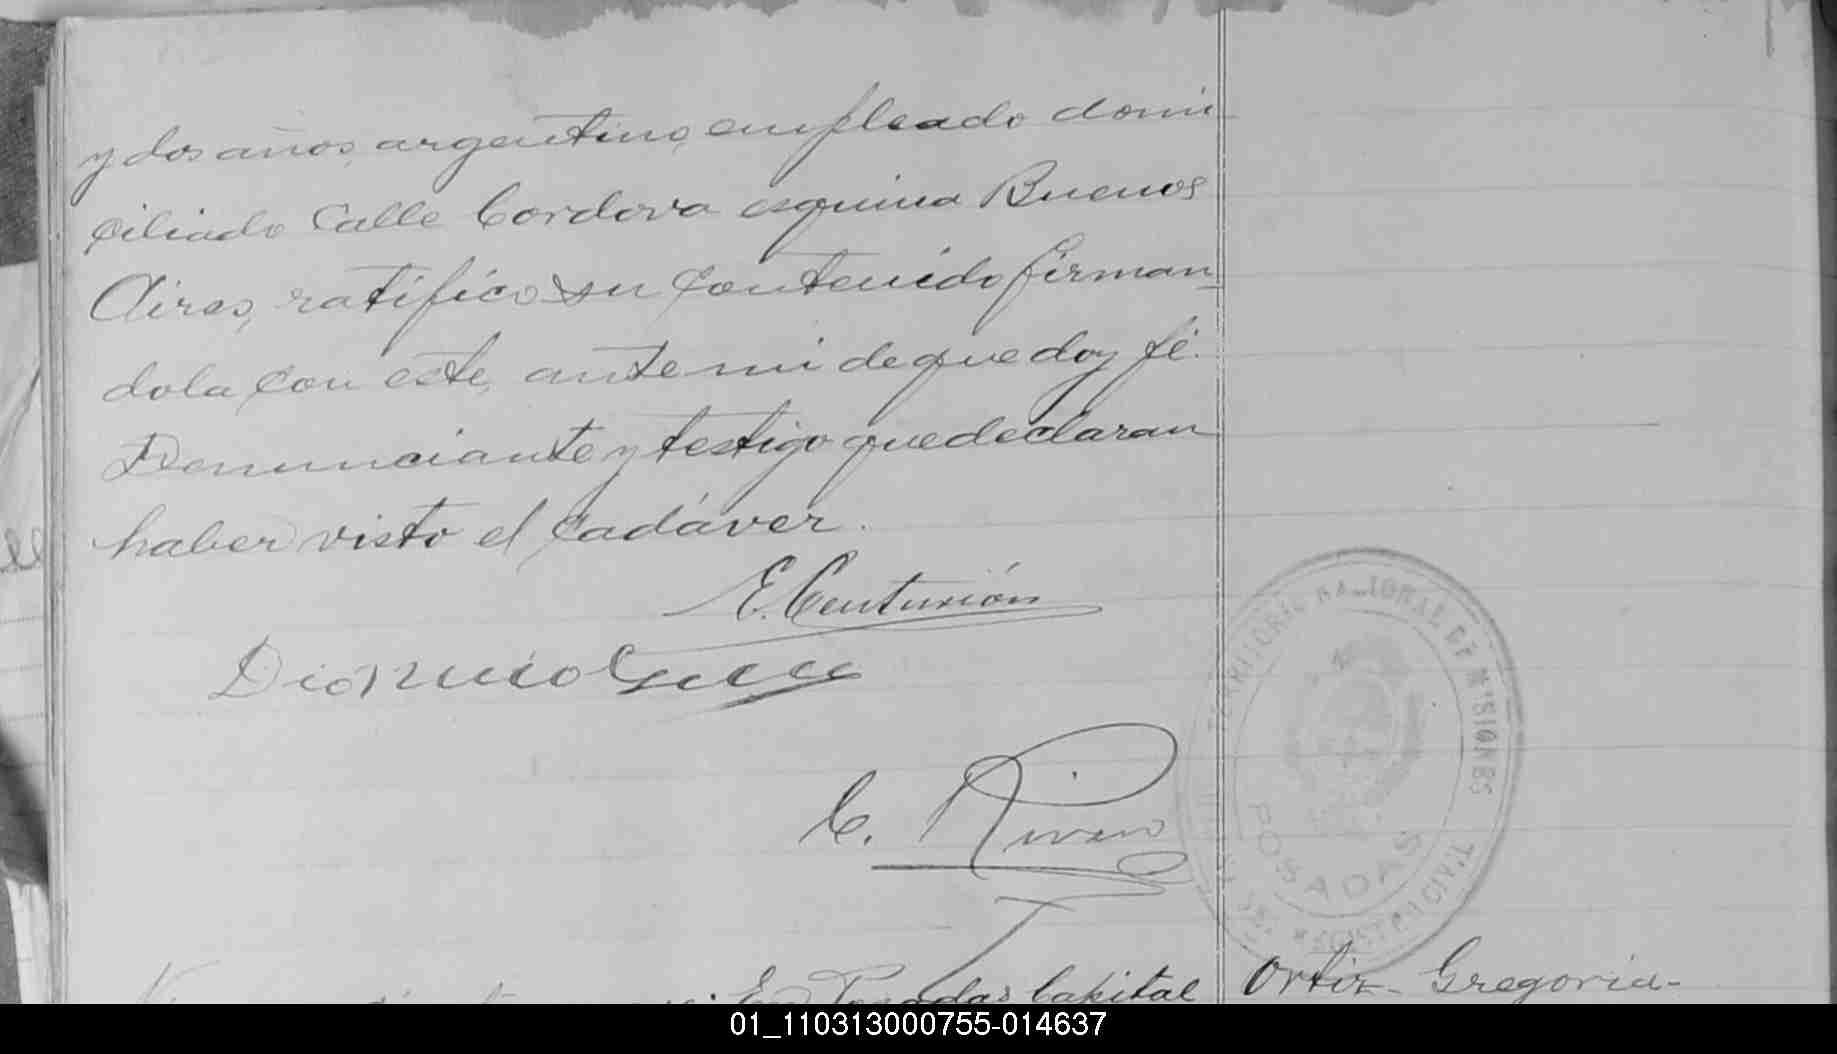 y dos años, argentino, empleado domi
ciliado Calle Cordova esquina Buenos
Aires, ratificó su contenido firman
dola con este, ante mi de que doy fé.
Denunciante y testigo que declaran
haber visto el cadáver.
E. Centurión
Dionicio
C. Rivero
TERRITORIO NACIONAL DE MISIONES
POSADAS
REGISTRO CIVIL
En Posadas Capital
Ortiz - Gregoria -
01_110313000755-014637